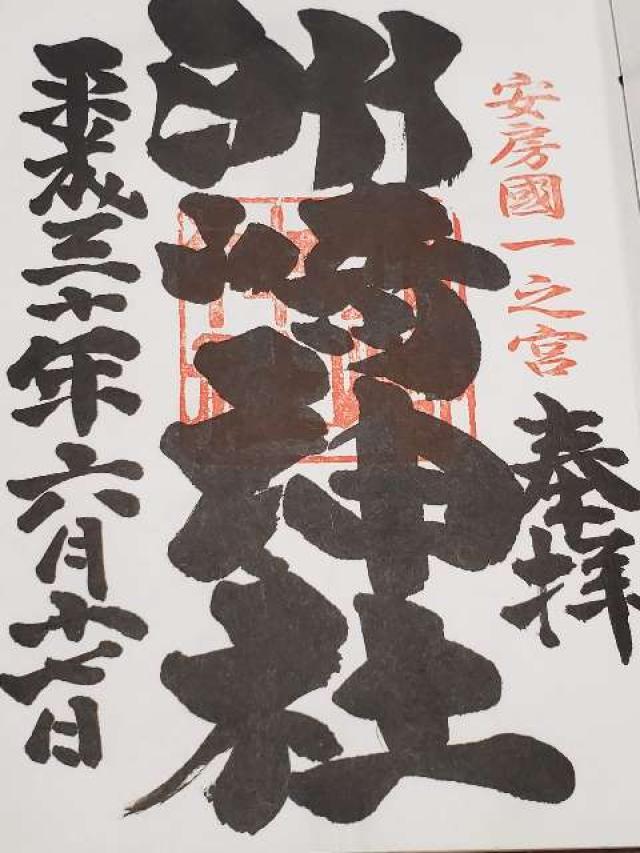 安房國一之宮
奉拝
洲崎神社
平成三十年六月十七日